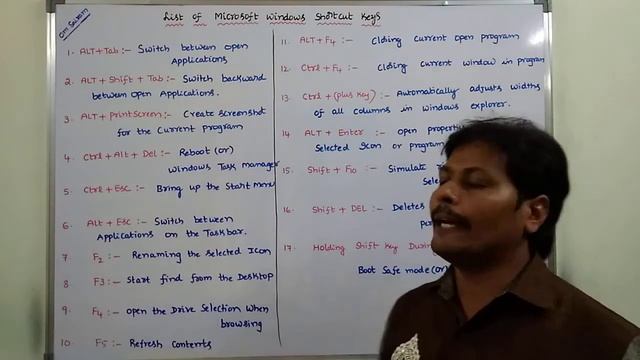 Om Sairam
List of Microsoft Windows Shortcut Keys
1. ALT+Tab :- Switch between open
Applications
2. ALT + Shift + Tab :- Switch backward
between open Applications.
3. ALT + printscreen :- Create screenshot
for the Current program
4. Ctrl + Alt + Del :- Reboot (or)
Windows Task manager
5. Ctrl + Esc :- Bring up the Start menu
6. Alt + Esc :- Switch between
Applications on the Taskbar.
7 F2 :- Renaming the selected Icon
8 F3 :- Start find from the Desktop
9. F4 :- open the Drive Selection when
browsing
10. F5 :- Refresh Contents
11. ALT + F4 :- Closing current open program
12. Ctrl + F4 :- Closing current window in program
13. Ctrl + (plus key) :- Automatically adjusts widths
of all columns in windows explorer.
14 ALT + Enter :- open
Selected Icon or program
15. Shift + F10 :- Simulate
16. Shift + DEL :- Deletes
17. Holding Shift Key
Boot Safe mode (or)